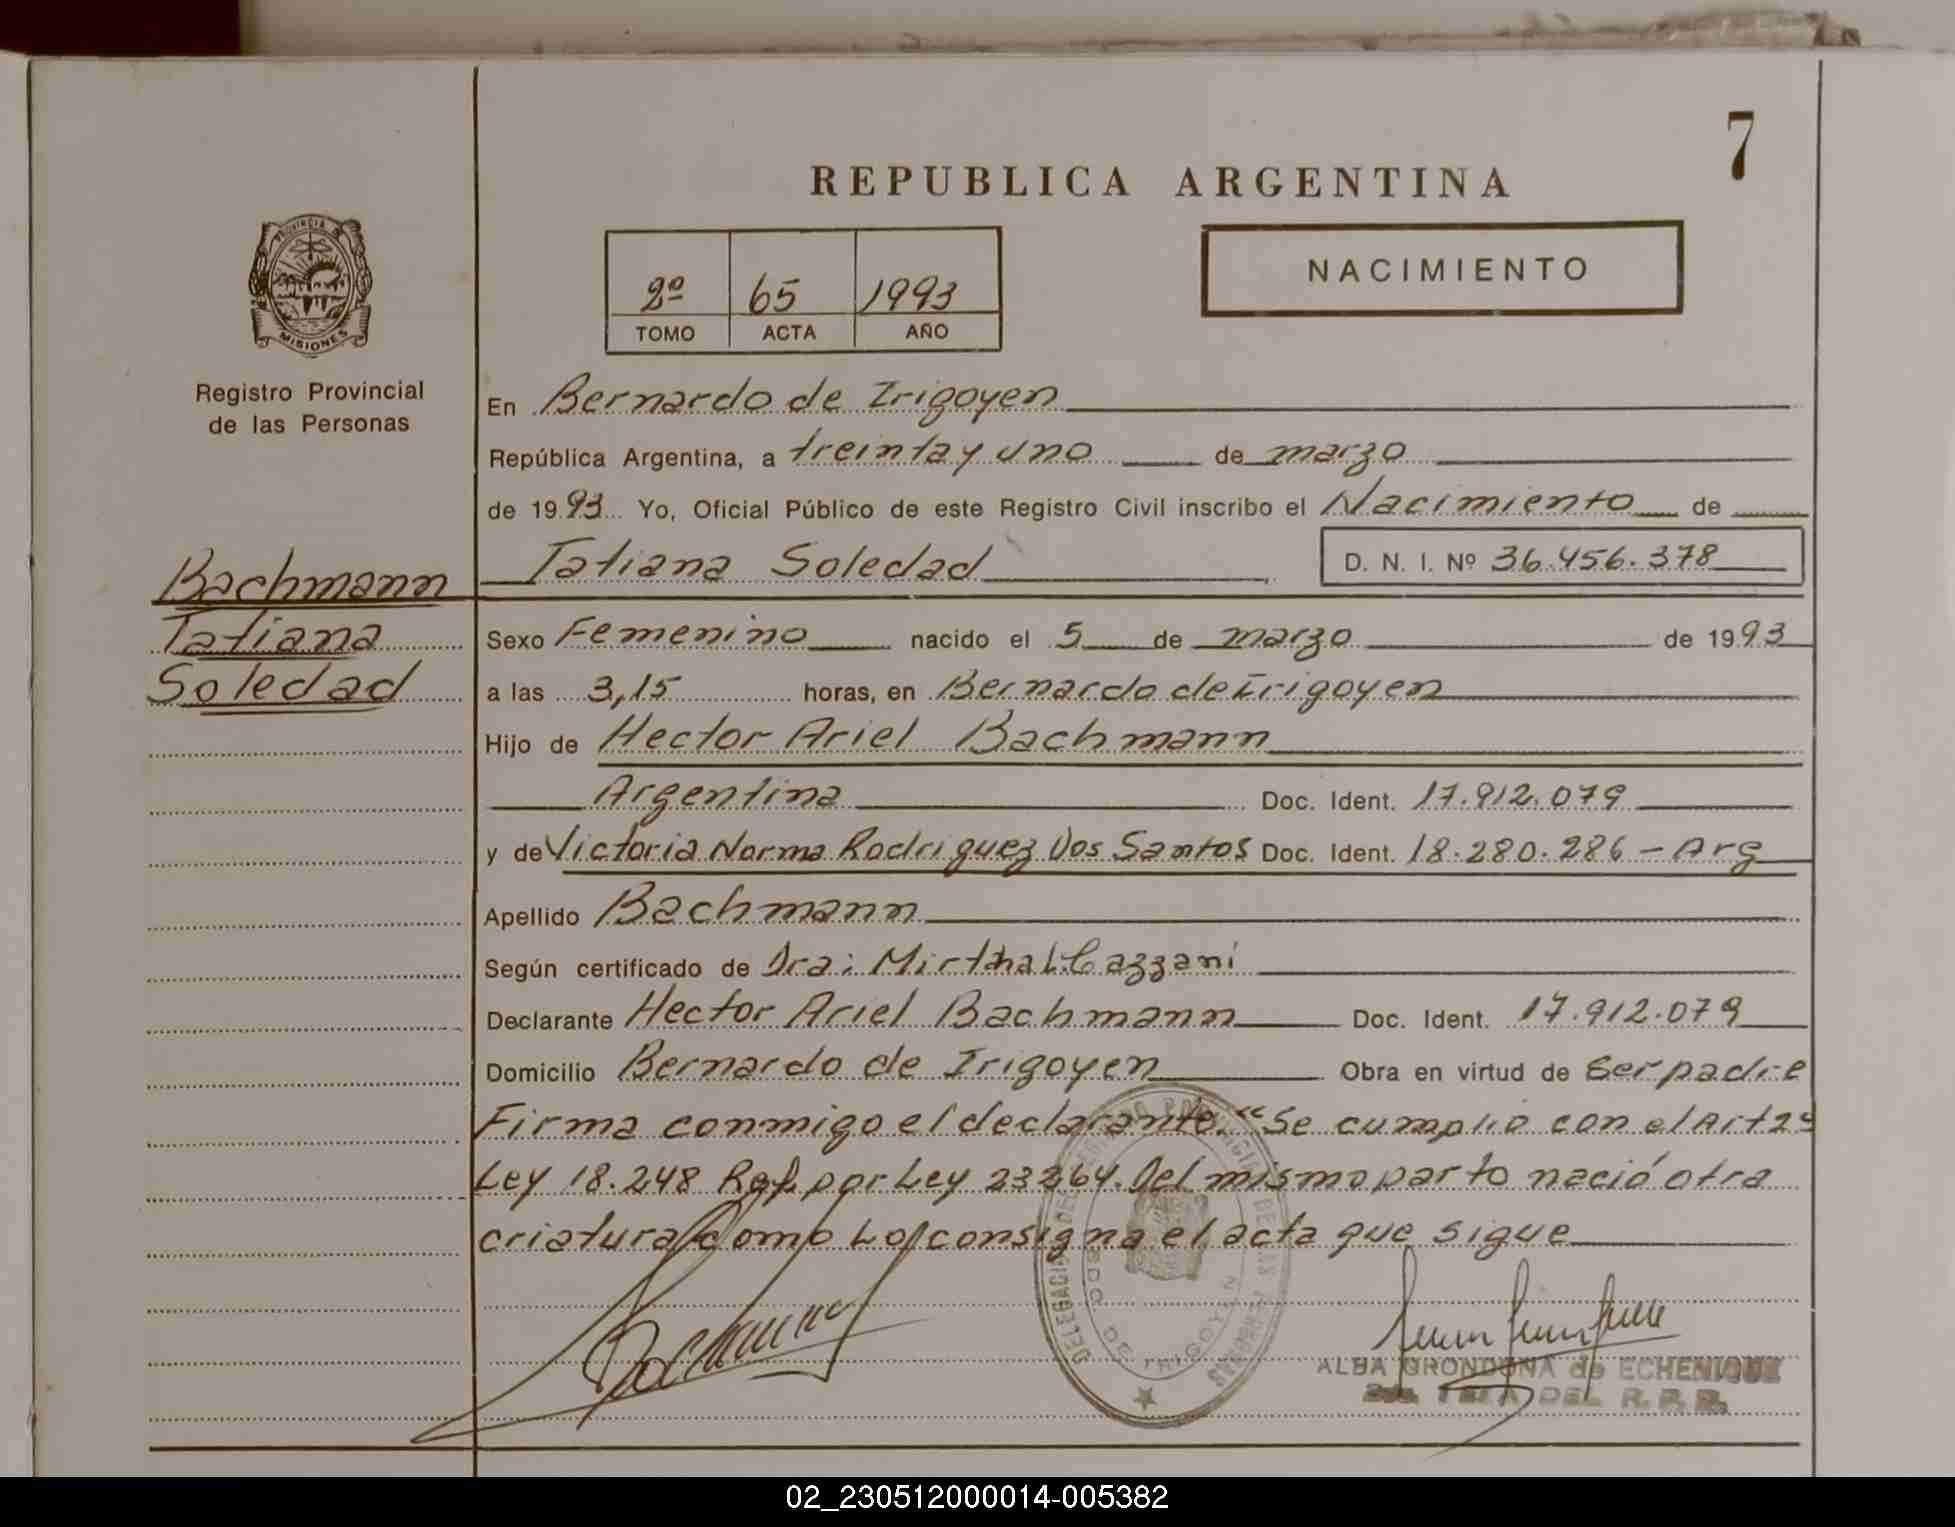 7
REPUBLICA ARGENTINA
PROVINCIA D
MISIONES
2º 65 1993
TOMO ACTA AÑO
NACIMIENTO
Registro Provincial
de las Personas
En Bernardo de Irigoyen
República Argentina, a treinta y uno de marzo
de 1993 Yo, Oficial Público de este Registro Civil inscribo el Nacimiento de
Tatiana Soledad D. N. I. Nº 36.456.378
Bachmann
Tatiana
Soledad
Sexo Femenino nacido el 5 de marzo de 1993
a las 3,15 horas, en Bernardo de Irigoyen
Hijo de Hector Ariel Bachmann
Argentina Doc. Ident. 17.912.079
y de Victoria Norma Rodriguez Dos Santos Doc. Ident. 18.280.286 - Arg
Apellido Bachmann
Según certificado de Dra: Mirtha L. Cazzani
Declarante Hector Ariel Bachmann Doc. Ident. 17.912.079
Domicilio Bernardo de Irigoyen Obra en virtud de Ser padre
Firma conmigo el declarante. "Se cumplió con el Art 2º
Ley 18.248 Ref. por Ley 23264. Del mismo parto nació otra
criatura como Lo consigna el acta que sigue
Bachmann
DELEGACION DEL REGISTRO PROVINCIAL DE LAS PERSONAS
BDO. DE IRIGOYEN
ALBA GRONDONA de ECHENIQUE
DEL R.P.P.
02_230512000014-005382